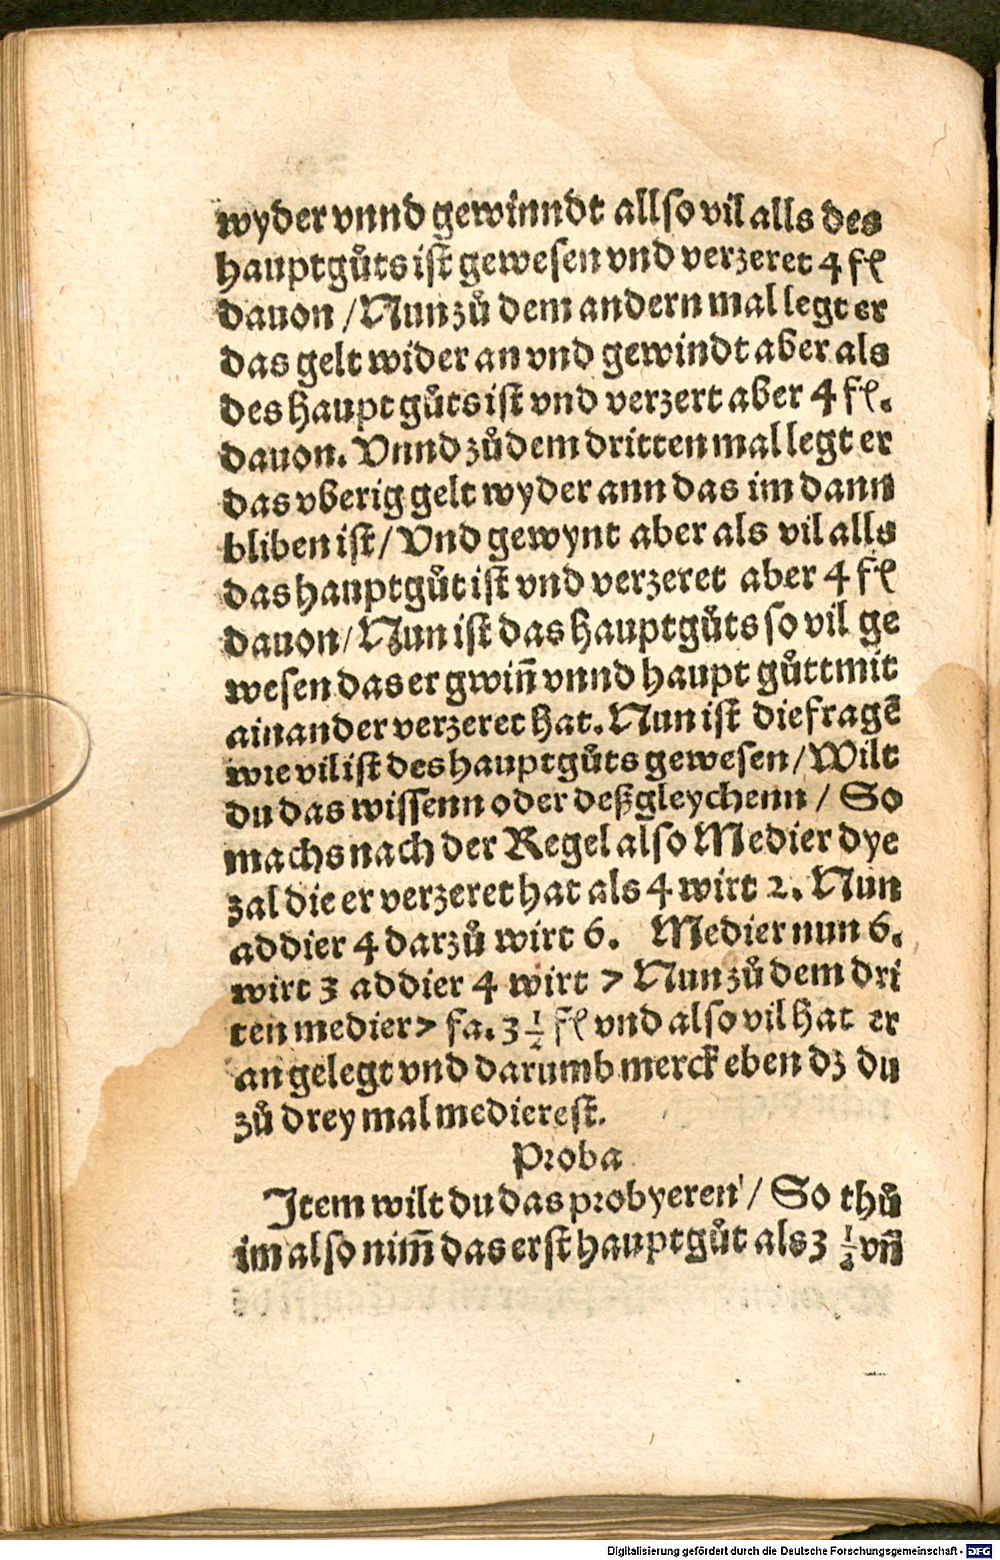 wyder vnnd gewinndt allso vil alls des
hauptgůts ist gewesen vnd verzeret 4 fl
dauon / Nun zů dem andern mal legt er
das gelt wider an vnd gewindt aber als
des haupt gůts ist vnd verzert aber 4 fl.
dauon. Vnnd zů dem dritten mal legt er
das vberig gelt wyder ann das im dann
bliben ist / Vnd gewynt aber als vil alls
das hauptgůt ist vnd verzeret aber 4 fl
dauon / Nun ist das hauptgůts so vil ge
wesen das er gwiñ vnnd haupt gůtt mit
ainander verzeret hat. Nun ist die fragē
wie vil ist des hauptgůts gewesen / Wilt
du das wissenn oder deßgleychenn / So
machs nach der Regel also Medier dye
zal die er verzeret hat als 4 wirt 2. Nun
addier 4 darzů wirt 6. Medier nun 6.
wirt 3 addier 4 wirt 7 Nun zů dem dri
ten medier 7 fa. 3 1/2 fl vnd also vil hat er
angelegt vnd darumb merck eben dz du
zů drey mal medierest.
Proba
Item wilt du das probyeren / So thů
im also nim̄ das erst hauptgůt als 3 1/2 vñ
Digitalisierung gefördert durch die Deutsche Forschungsgemeinschaft - DFG